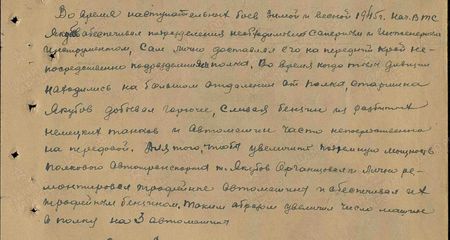 Во время наступательных боев зимой и весной 1945 г. нач. ВТС
Якубов обеспечивал подразделения необходимым саперным и инженерным
инструментом, сам лично доставлял его на передний край не-
посредственно подразделениям полка. Во время когда тылы дивизии
находились на большом отдалении от полка, старшина
Якубов добывал горючее, сливая бензин из разбитых
немецких танков и автомашин часто непосредственно
на передовой. Для того, чтобы увеличить подъемную мощность
полкового автотранспорта т. Якубов организовал и лично ре-
монтировал трофейные автомашины и обеспечивал их
трофейным бензином. Таким образом увеличил число машин
в полку на 3 автомашины